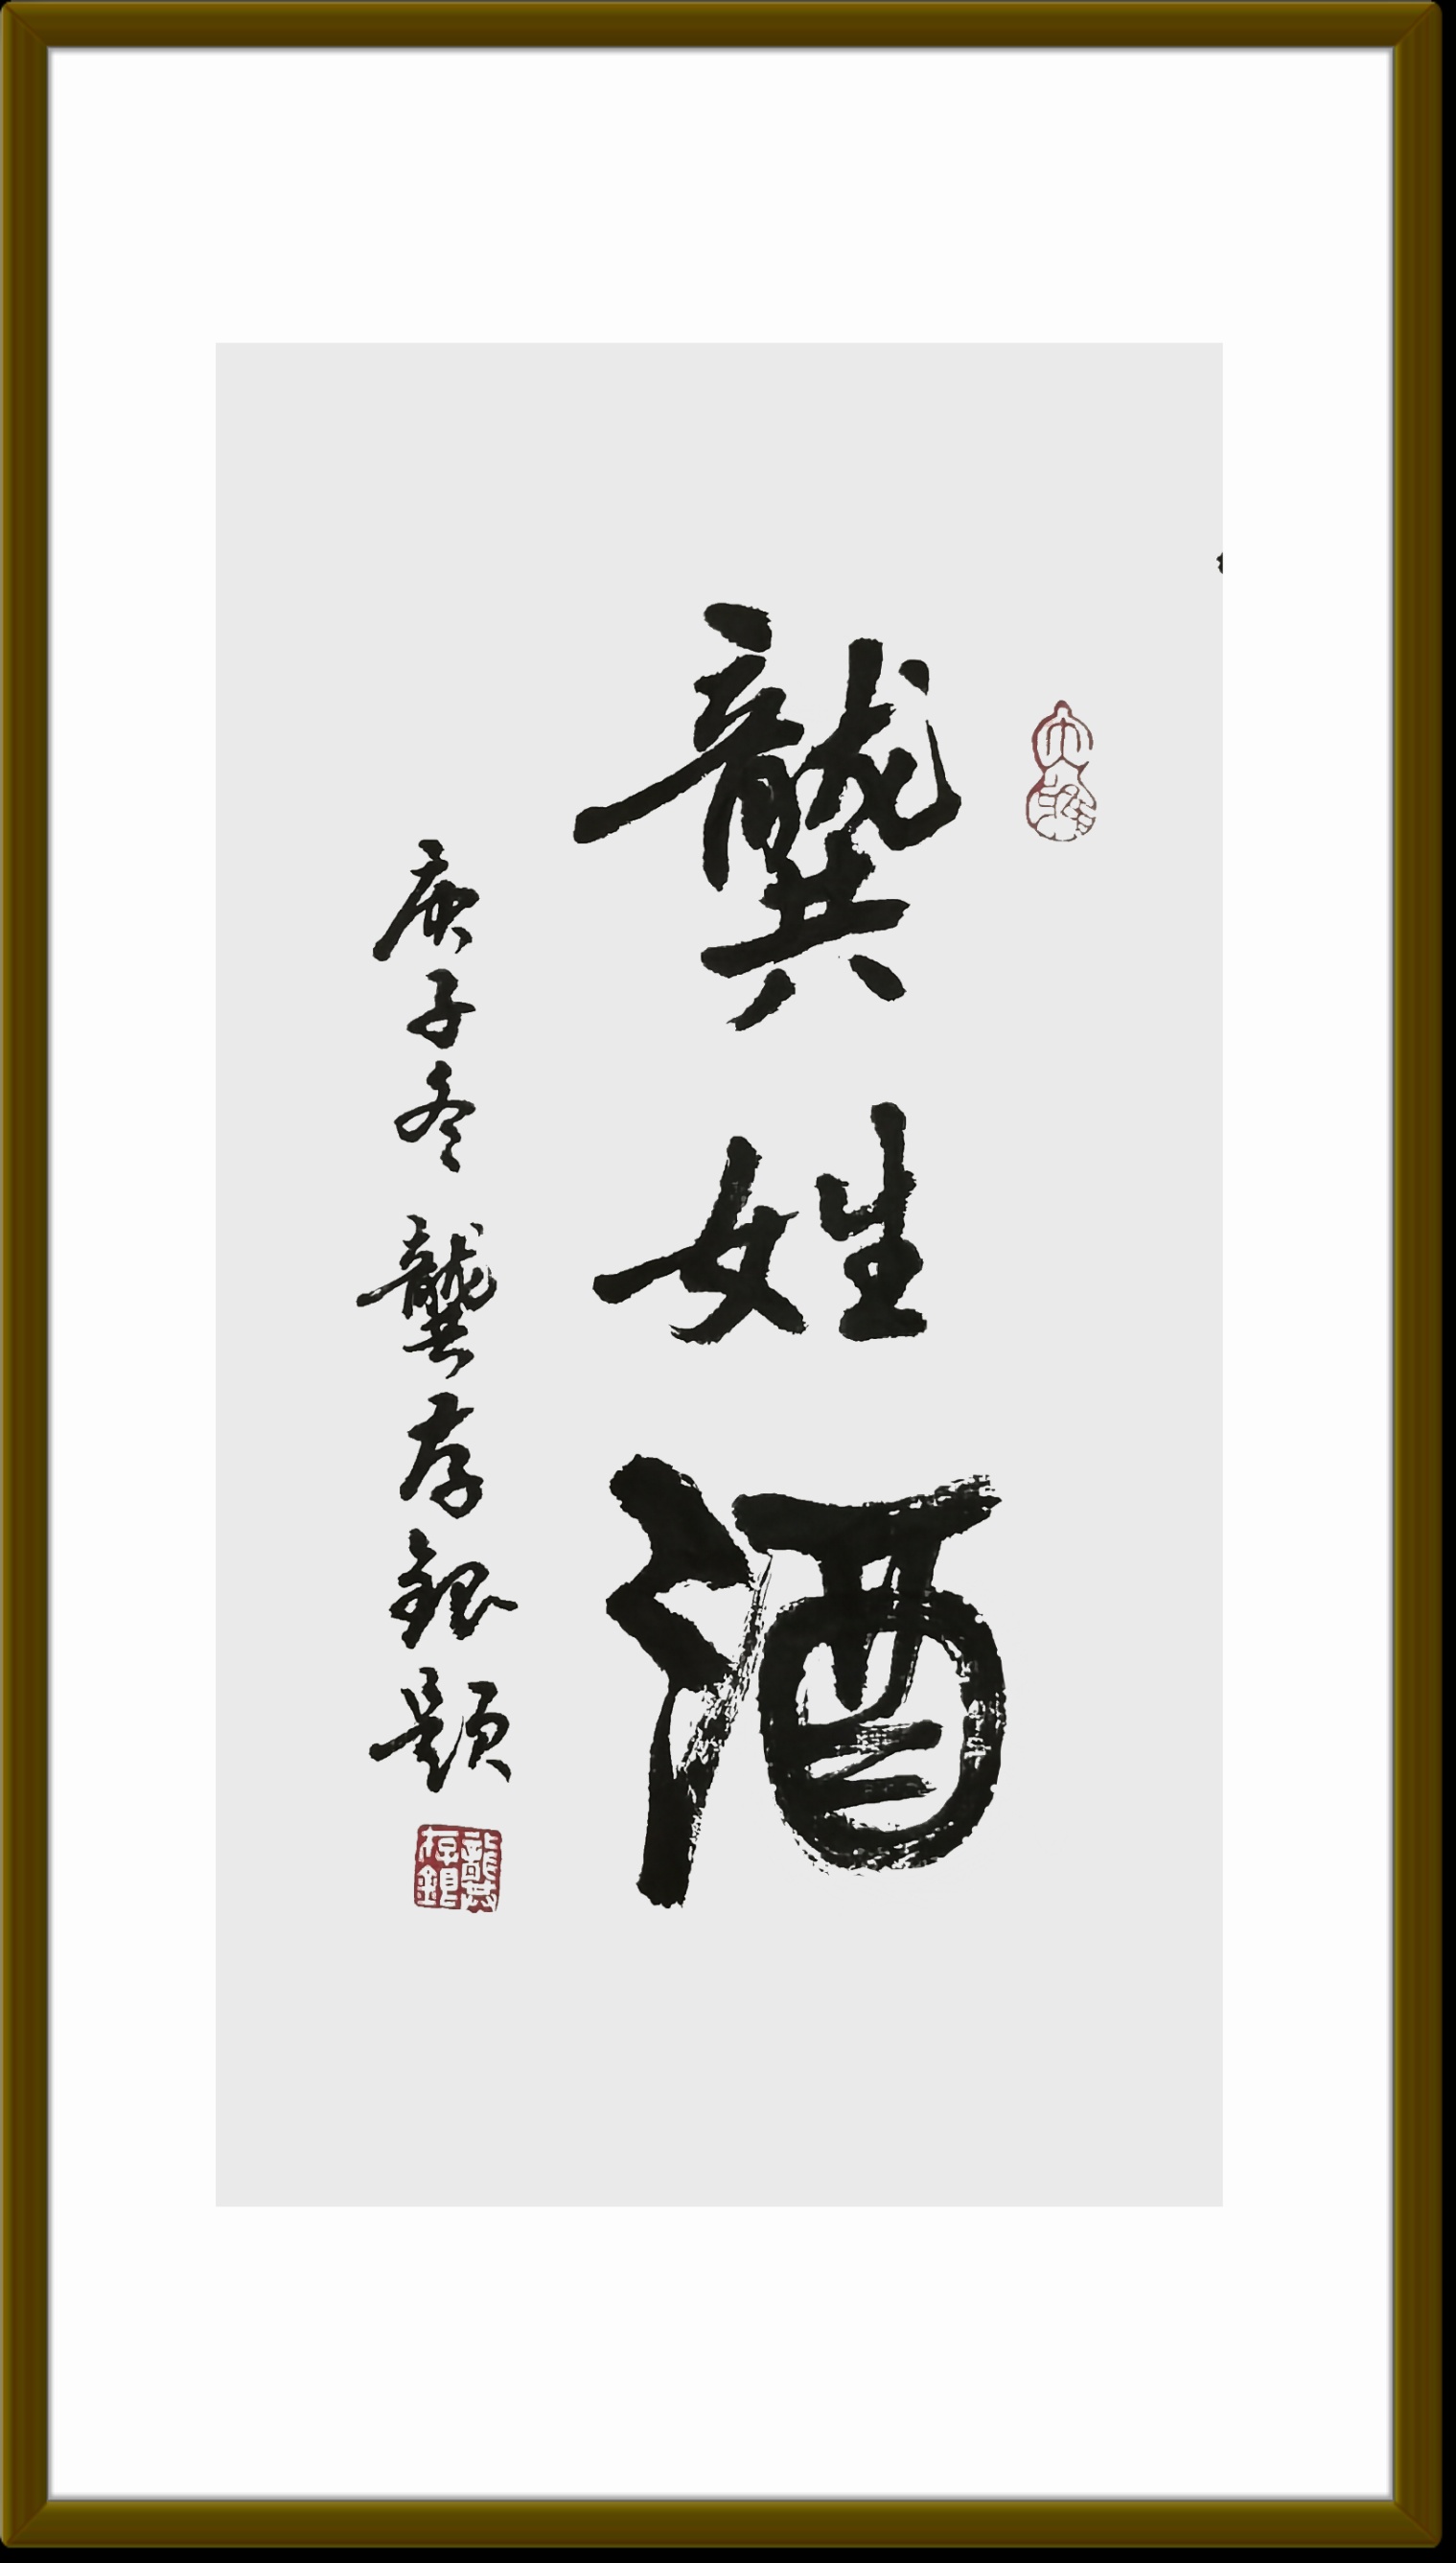 龔姓酒
庚子冬 龔存銀題
龔存銀